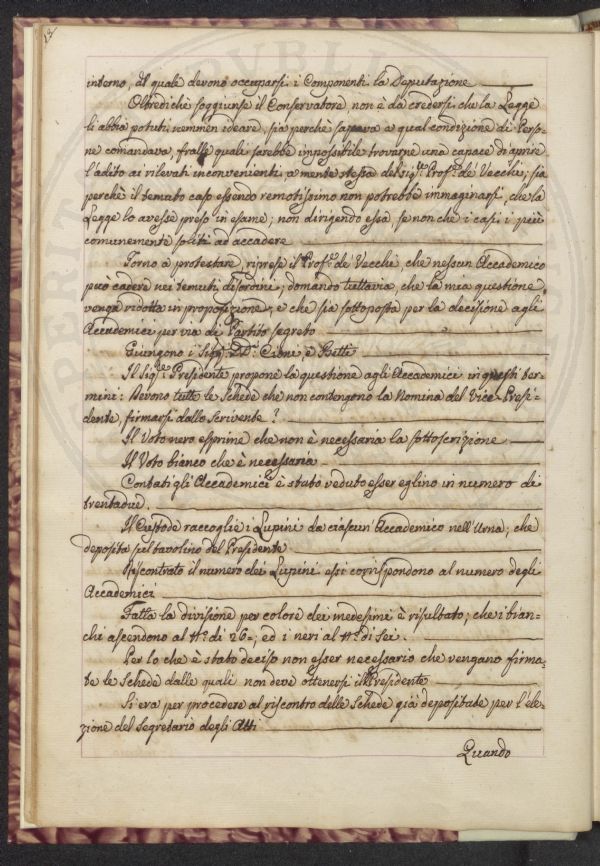 12
interno, al quale devono occuparsi i Componenti la Deputazione
Oltredichè soggiunse il Conservatore non è da credersi che la Legge
li abbia potuti nemmen ideare, sia perchè sapeva a qual condizione di Perso-
ne comandava, fralle quali sarebbe impossibile trovarne una capace di aprire
l'adito ai rilevati inconvenienti, a mente stessa del sig.r Prof.re de Vecchi; sia
perchè il temuto caso essendo remotissimo non potrebbe immaginarsi, che la
Legge lo avesse preso in esame; non dirigendo essa, se non che i casi i più
comunemente soliti ad accadere
Torno a protestare, riprese il Prof.re de Vecchi, che nessun Accademico
può cadere nei temuti disordini; domando tuttavia, che la mia questione
venga ridotta in proposizione, e che sia sottoposta per la decisione agli
Accademici per via di Partito segreto
Giungono i Sigg.ri DD.ri Cioni e Betti
Il Sig.re Presidente propone la questione agli Accademici in questi ter-
mini: Devono tutte le schede che non contengono la Nomina del Vice-Presi-
dente, firmarsi dallo scrivente?
Il Voto nero esprime che non è necessaria la sottoscrizione
Il Voto bianco che è necessaria
Contati gli Accademici è stato veduto esser eglino in numero di
trentadue.
Il Custode raccoglie i Lupini da ciascun'Accademico nell'Urna, che
deposita sul tavolino del Presidente
Riscontrato il numero dei Lupini essi corrispondono al numero degli
Accademici
Fatta la divisione per colore dei medesimi è risultato; che i bian-
chi ascendono al N.o di 26=; ed i neri al N.o di sei.
Per lo che è stato deciso non esser necessario che vengano firma-
te le schede dalle quali non deve ottenersi il Presidente
Si era per procedere al riscontro delle schede già depositate per l'ele-
zione del Segretario degli Atti
Quando